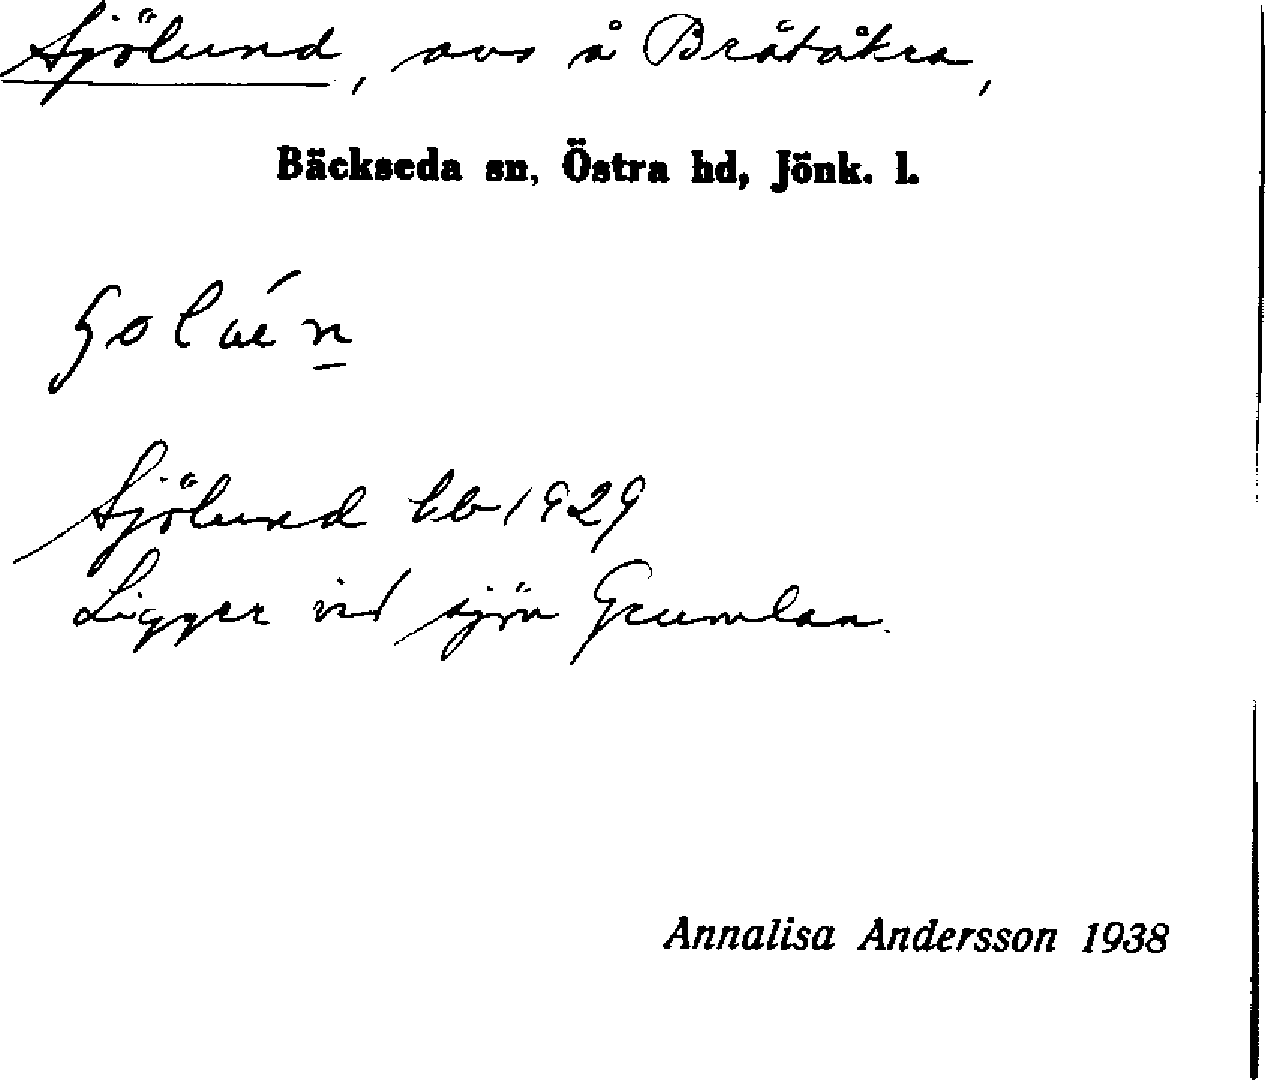 Sjölund, avs å Bråtåkra,
Bäckseda sn, Östra hd, Jönk. l.
Sjölund lb 1929
Ligger vid sjön Grumlan.
Annalisa Andersson 1938